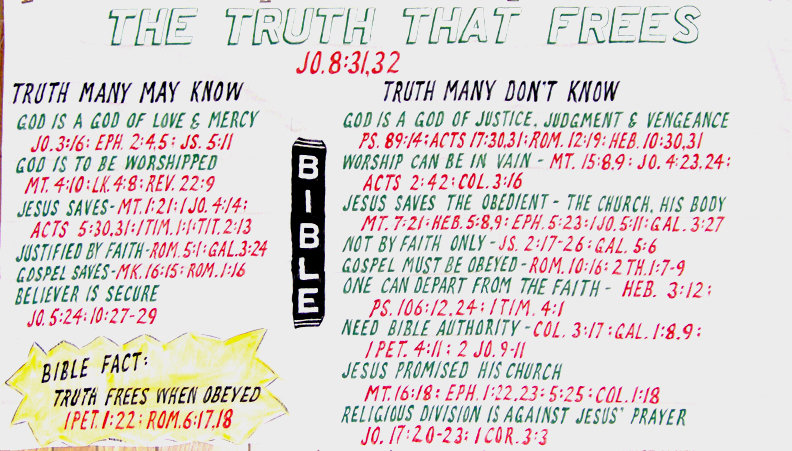 THE TRUTH THAT FREES
JO. 8:31,32
TRUTH MANY MAY KNOW
GOD IS A GOD OF LOVE & MERCY
JO. 3:16; EPH. 2:4,5; JS. 5:11
GOD IS TO BE WORSHIPPED
MT. 4:10; LK. 4:8; REV. 22:9
JESUS SAVES-MT.1:21; 1 JO. 4:14;
ACTS 5:30,31; 1 TIM. 1:1; TIT. 2:13
JUSTIFIED BY FAITH-ROM. 5:1; GAL. 3:24
GOSPEL SAVES-MK. 16:15; ROM. 1:16
BELIEVER IS SECURE
JO. 5:24; 10:27-29
BIBLE FACT:
TRUTH FREES WHEN OBEYED
1 PET. 1:22; ROM. 6:17,18
BIBLE
TRUTH MANY DON'T KNOW
GOD IS A GOD OF JUSTICE, JUDGMENT & VENGEANCE
PS. 89:14; ACTS 17:30,31; ROM. 12:19; HEB. 10:30,31
WORSHIP CAN BE IN VAIN - MT. 15:8,9; JO. 4:23,24;
ACTS 2:42; COL. 3:16
JESUS SAVES THE OBEDIENT - THE CHURCH, HIS BODY
MT. 7:21; HEB. 5:8,9; EPH. 5:23; 1 JO. 5:11; GAL. 3:27
NOT BY FAITH ONLY - JS. 2:17-26; GAL. 5:6
GOSPEL MUST BE OBEYED - ROM. 10:16; 2 TH. 1:7-9
ONE CAN DEPART FROM THE FAITH - HEB. 3:12;
PS. 106:12,24; 1 TIM. 4:1
NEED BIBLE AUTHORITY - COL. 3:17; GAL. 1:8,9;
1 PET. 4:11; 2 JO. 9-11
JESUS PROMISED HIS CHURCH
MT. 16:18; EPH. 1:22,23; 5:25; COL. 1:18
RELIGIOUS DIVISION IS AGAINST JESUS' PRAYER
JO. 17:20-23; 1 COR. 3:3